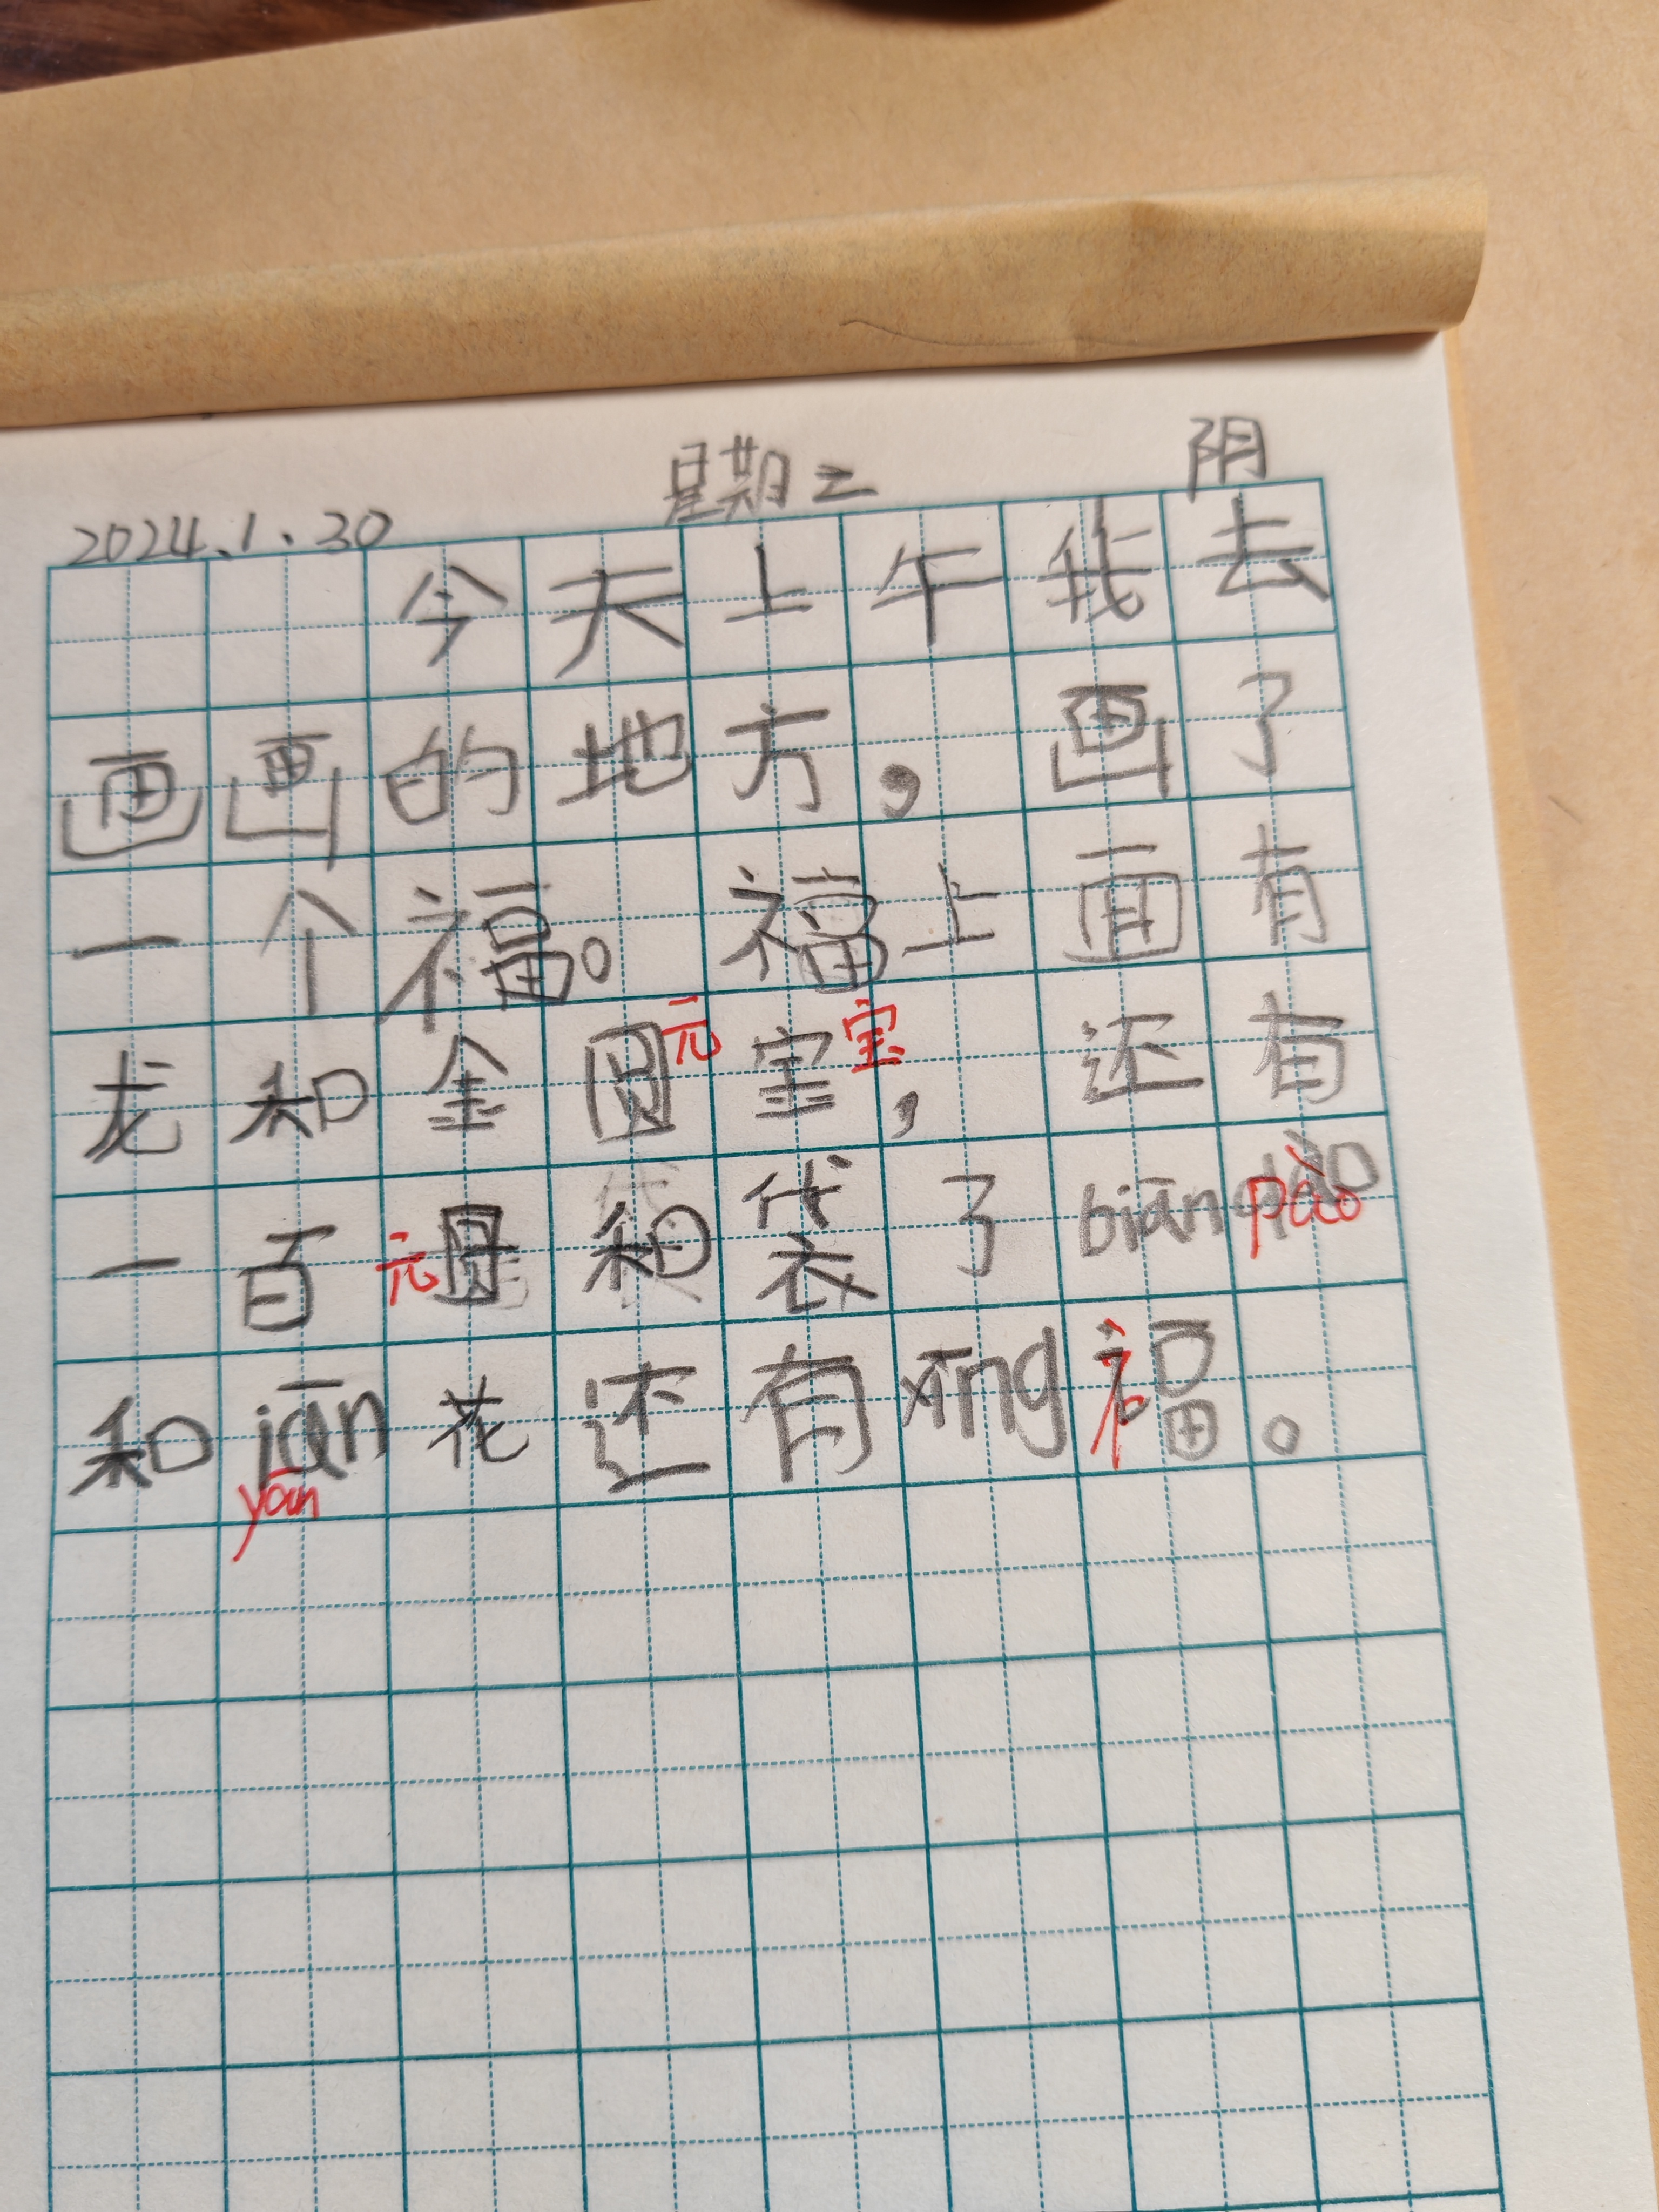 2024.1.30 星期二 阴
今天上午我去
画画的地方，画了
一个福。福上面有
龙和金圆元宝宝，还有
一百元圆和袋了biān pào
和jān花还有xīng福。
yān